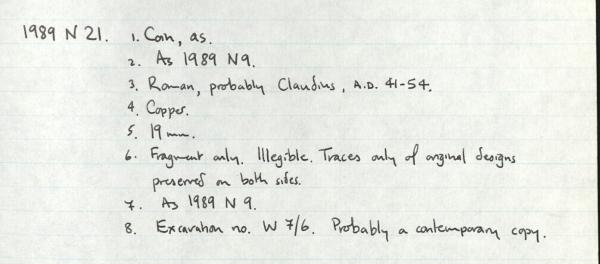 1989 N 21. 1. Coin, as.
2. As 1989 N9.
3. Roman, probably Claudius, A.D. 41-54.
4. Copper.
5. 19mm.
6. Fragment only. Illegible. Traces only of original designs
preserved on both sides.
7. As 1989 N 9.
8. Excavation no. W 7/6. Probably a contemporary copy.